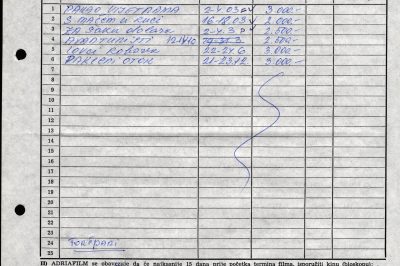 1 PRKAO VJETROMA 2-4.03. 3.000.-
2 S MAJCOM U KUĆI 16-18.03. 2.000.-
3 ZA ŠAKU DOLARA 2-4.3 2.500.-
4 AVANTURISTI 12-14/10 29-31.3 2.500.-
5 LOVCI 22-24.6 3.000.-
6 PAKLENI OTOK 21-23.12. 3.000.-
7
8
9
10
11
12
13
14
15
16
17
18
19
20
21
22
23
24
25
II) ADRIAFILM se obavezuje da će najkasnije 15 dana prije početka termina filma, isporučiti kinu (bioskopu):